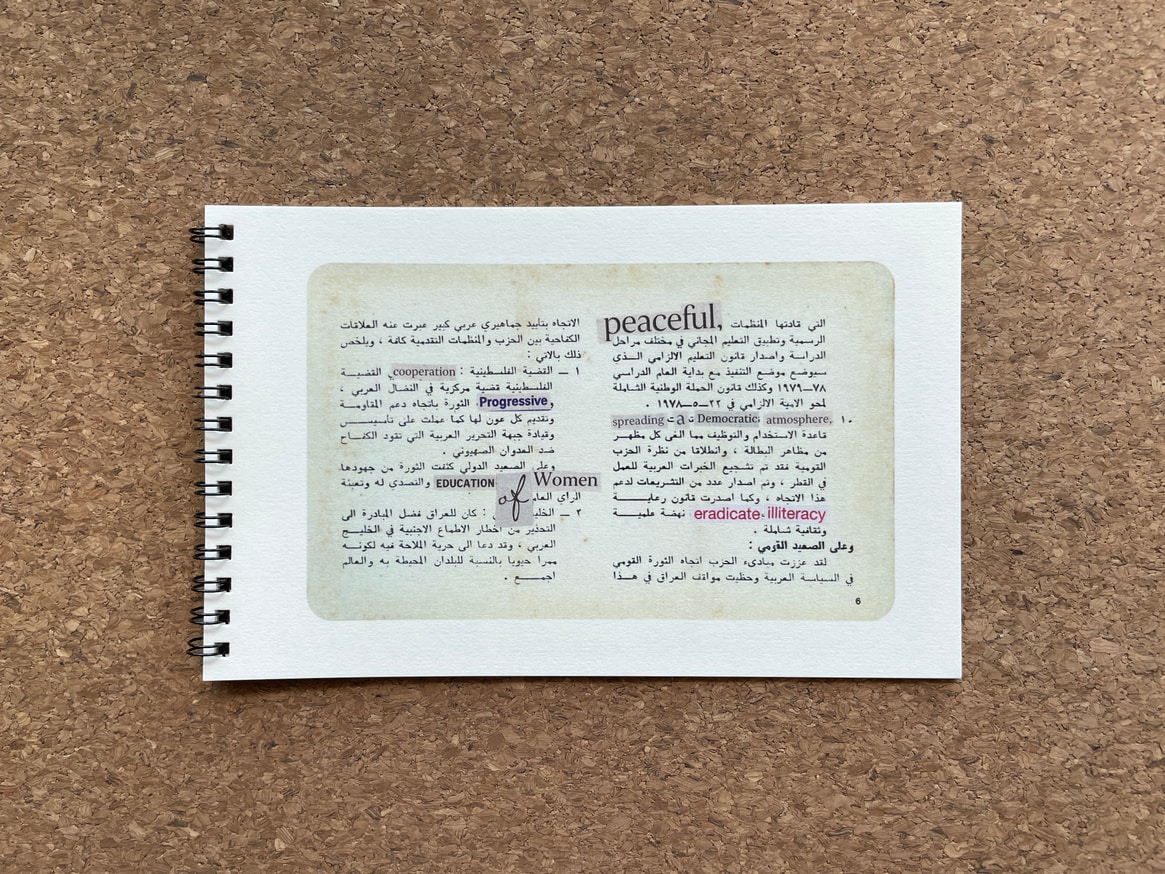 peaceful, التي قادتها المنظمات
الرسمية وتطبيق التعليم المجاني في مختلف مراحل
الدراسة واصدار قانون التعليم الالزامي الـذي
سيوضع موضع التنفيذ مع بداية العام الدراسي
٧٨ــ١٩٧٩ وكذلك قانون الحملة الوطنية الشاملة
لمحو الامية الالزامي في ٢٢ــ٥ــ١٩٧٨ .
١٠ spreading a Democratic atmosphere,
قاعدة الاستخدام والتوظيف مما الغى كل مظهـر
من مظاهر البطالة ، وانطلاقا من نظرة الحزب
القومية فقد تم تشجيع الخبرات العربية للعمل
في القطر ، وتم اصدار عدد من التشريعات لدعم
هذا الاتجاه ، وكما اصدرت قانون رعايـــــة
eradicate illiteracy نهضة علميـــة
وثقافية شاملة .
وعلى الصعيد القومي :
لقد عززت مبادىء الحزب اتجاه الثورة القومي
في السياسة العربية وحظيت مواقف العراق في هـذا
6
الاتجاه بتأييد جماهيري عربي كبير عبرت عنه العلاقات
الكفاحية بين الحزب والمنظمات التقدمية كافة ، ويلخص
ذلك بالاتي :
١ ــ القضية الفلسطينية : cooperation القضيـــة
الفلسطينية قضية مركزية في النضال العربي ،
Progressive, الثورة باتجاه دعم المقاومـــة
وتقديم كل عون لها كما عملت على تأسيـــــس
وقيادة جبهة التحرير العربية التي تقود الكفـــاح
ضد العدوان الصهيوني .
وعلى الصعيد الدولي كثفت الثورة من جهودها
EDUCATION of Women والتصدي له وتعبئة
الراي العام
٢ ــ الخليج : كان للعراق فضل المبادرة الى
التحذير من اخطار الاطماع الاجنبية في الخليـــج
العربي ، وقد دعا الى حرية الملاحة فيه لكونـــه
ممرا حيويا بالنسبة للبلدان المحيطة به والعالم
اجمـــــع .